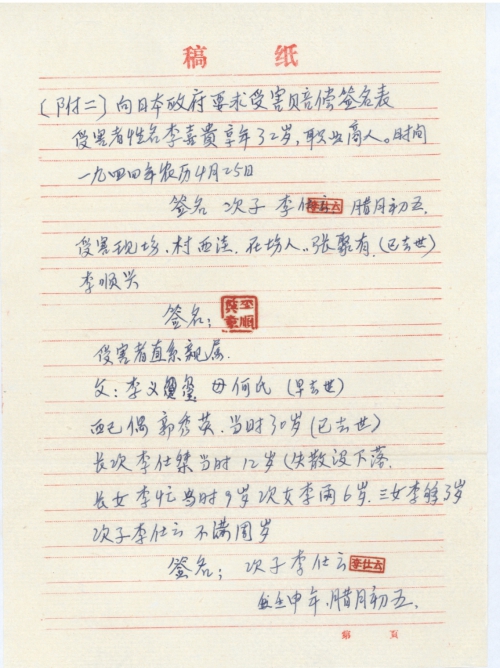 稿 纸
〔附二〕向日本政府要求受害赔偿签名表
受害者性名李喜贵享年32岁,职业商人。时间
一九四四年农历4月25日
签名 次子 李仕云 腊月初五.
受害现场.村西洼.在场人..张聚有.(已去世)
李顺兴
签名:
受害者直系親属.
父:李义 母何氏 (早去世)
配偶 郭秀英.当时30岁(已去世)
长次李仕桀当时12岁(失散没下落.
长女李忙当时9岁次女李两6岁.三女李够3岁
次子李仕云 不满周岁
签名; 次子李仕云 李仕云
壬申年.腊月初五.
第 页